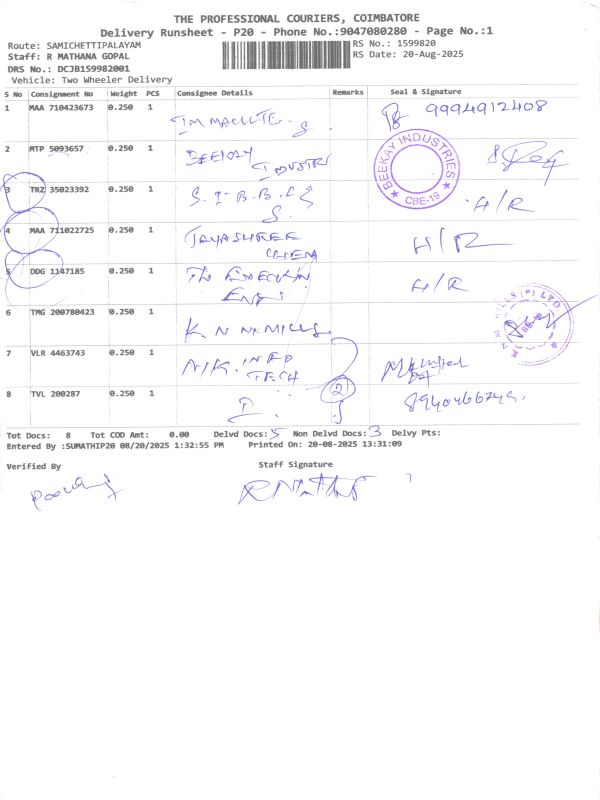 THE PROFESSIONAL COURIERS, COIMBATORE
Delivery Runsheet - P20 - Phone No.:9047080280 - Page No.:1
Route: SAMICHETTIPALAYAM
RS No.: 1599820
Staff: R MATHANA GOPAL
RS Date: 20-Aug-2025
DRS No.: DCJB159982001
Vehicle: Two Wheeler Delivery
S No Consignment No Weight PCS Consignee Details Remarks Seal & Signature
1 MAA 710423673 0.250 1 9994912408
2 MTP 5093657 0.250 1 BEEKAY
INDUSTRI
BEEKAY INDUSTRIES
CBE-19
3 TRZ 35023392 0.250 1 H/R
4 MAA 711022725 0.250 1 JAYASHREE H/R
CHEM
5 DDG 1147185 0.250 1 The H/R
6 TMG 200780423 0.250 1 K N M MILLS
MILLS (P) LTD
7 VLR 4463743 0.250 1 INFO
TECH
8 TVL 200287 0.250 1 2
Tot Docs: 8 Tot COD Amt: 0.00 Delvd Docs: 5 Non Delvd Docs: 3 Delvy Pts:
Entered By :SUMATHIP20 08/20/2025 1:32:55 PM Printed On: 20-08-2025 13:31:09
Verified By Staff Signature